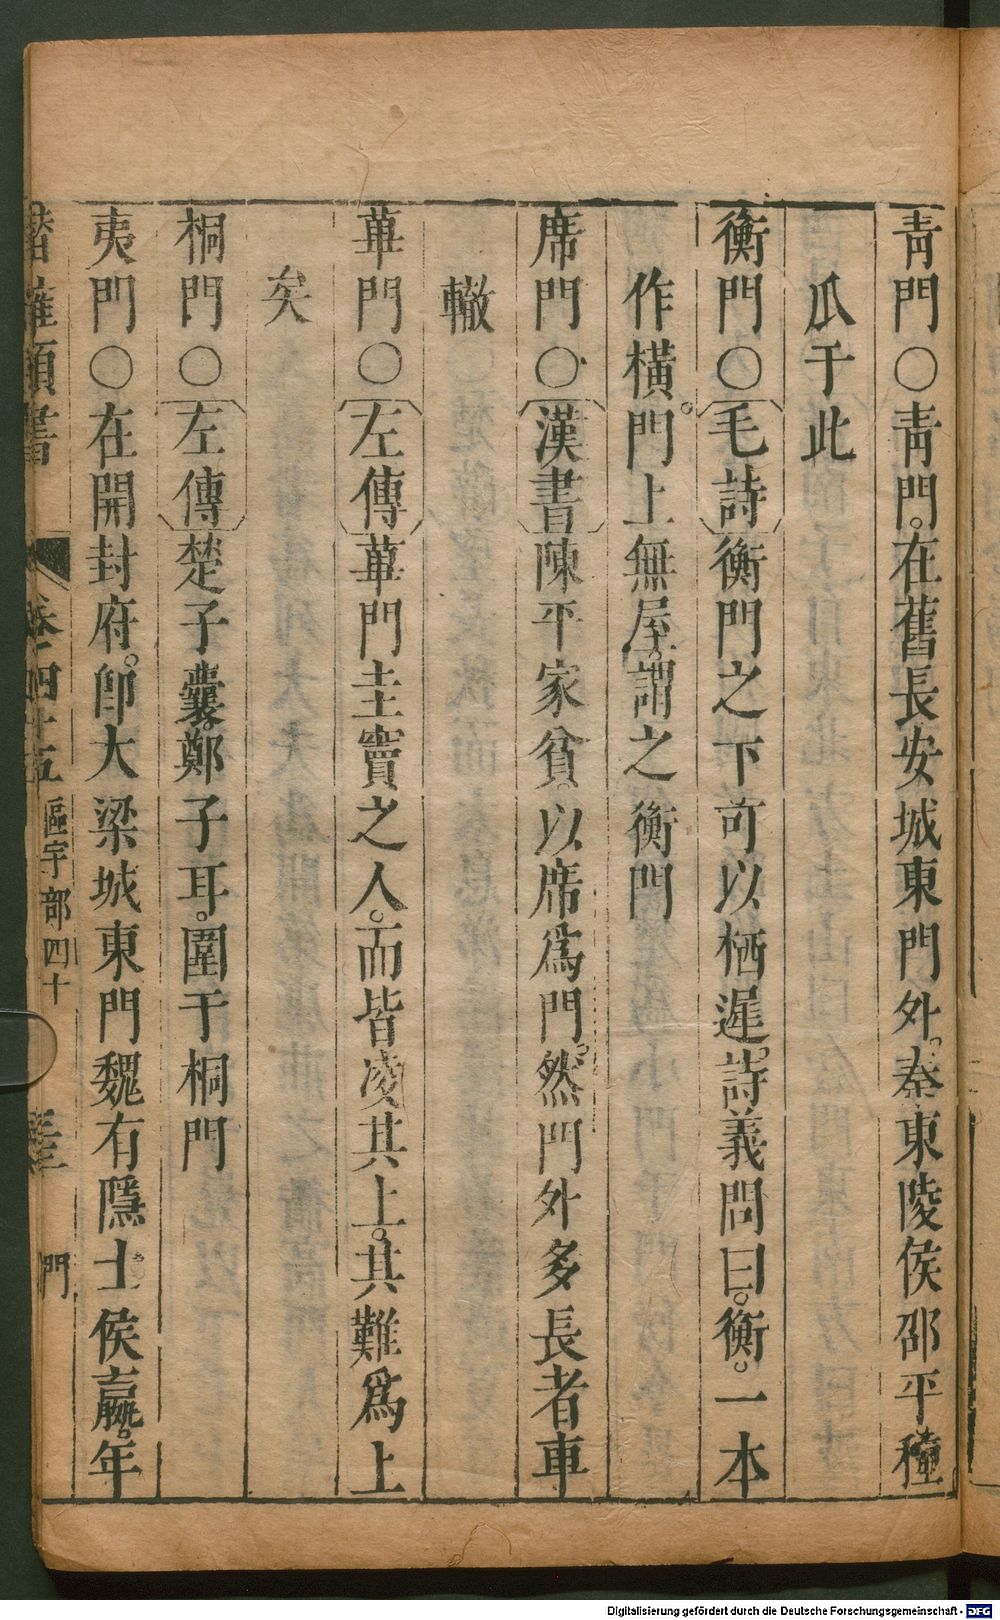 青門〇青門。在舊長安城東門外。秦東陵侯邵平種
瓜于此
衡門〇毛詩衡門之下可以栖遲。詩義問曰。衡。一本
作橫。門上無屋。謂之衡門
席門〇漢書陳平家貧。以席爲門。然門外多長者車
轍
蓽門〇左傳蓽門圭竇之人。而皆凌其上。其難爲上
矣
桐門〇左傳楚子囊。鄭子耳。圍于桐門
夷門〇在開封府。卽大梁城東門魏有隱士侯嬴。年
潛確類書 卷四十五 區宇部四十 門
Digitalisierung gefördert durch die Deutsche Forschungsgemeinschaft - DFG